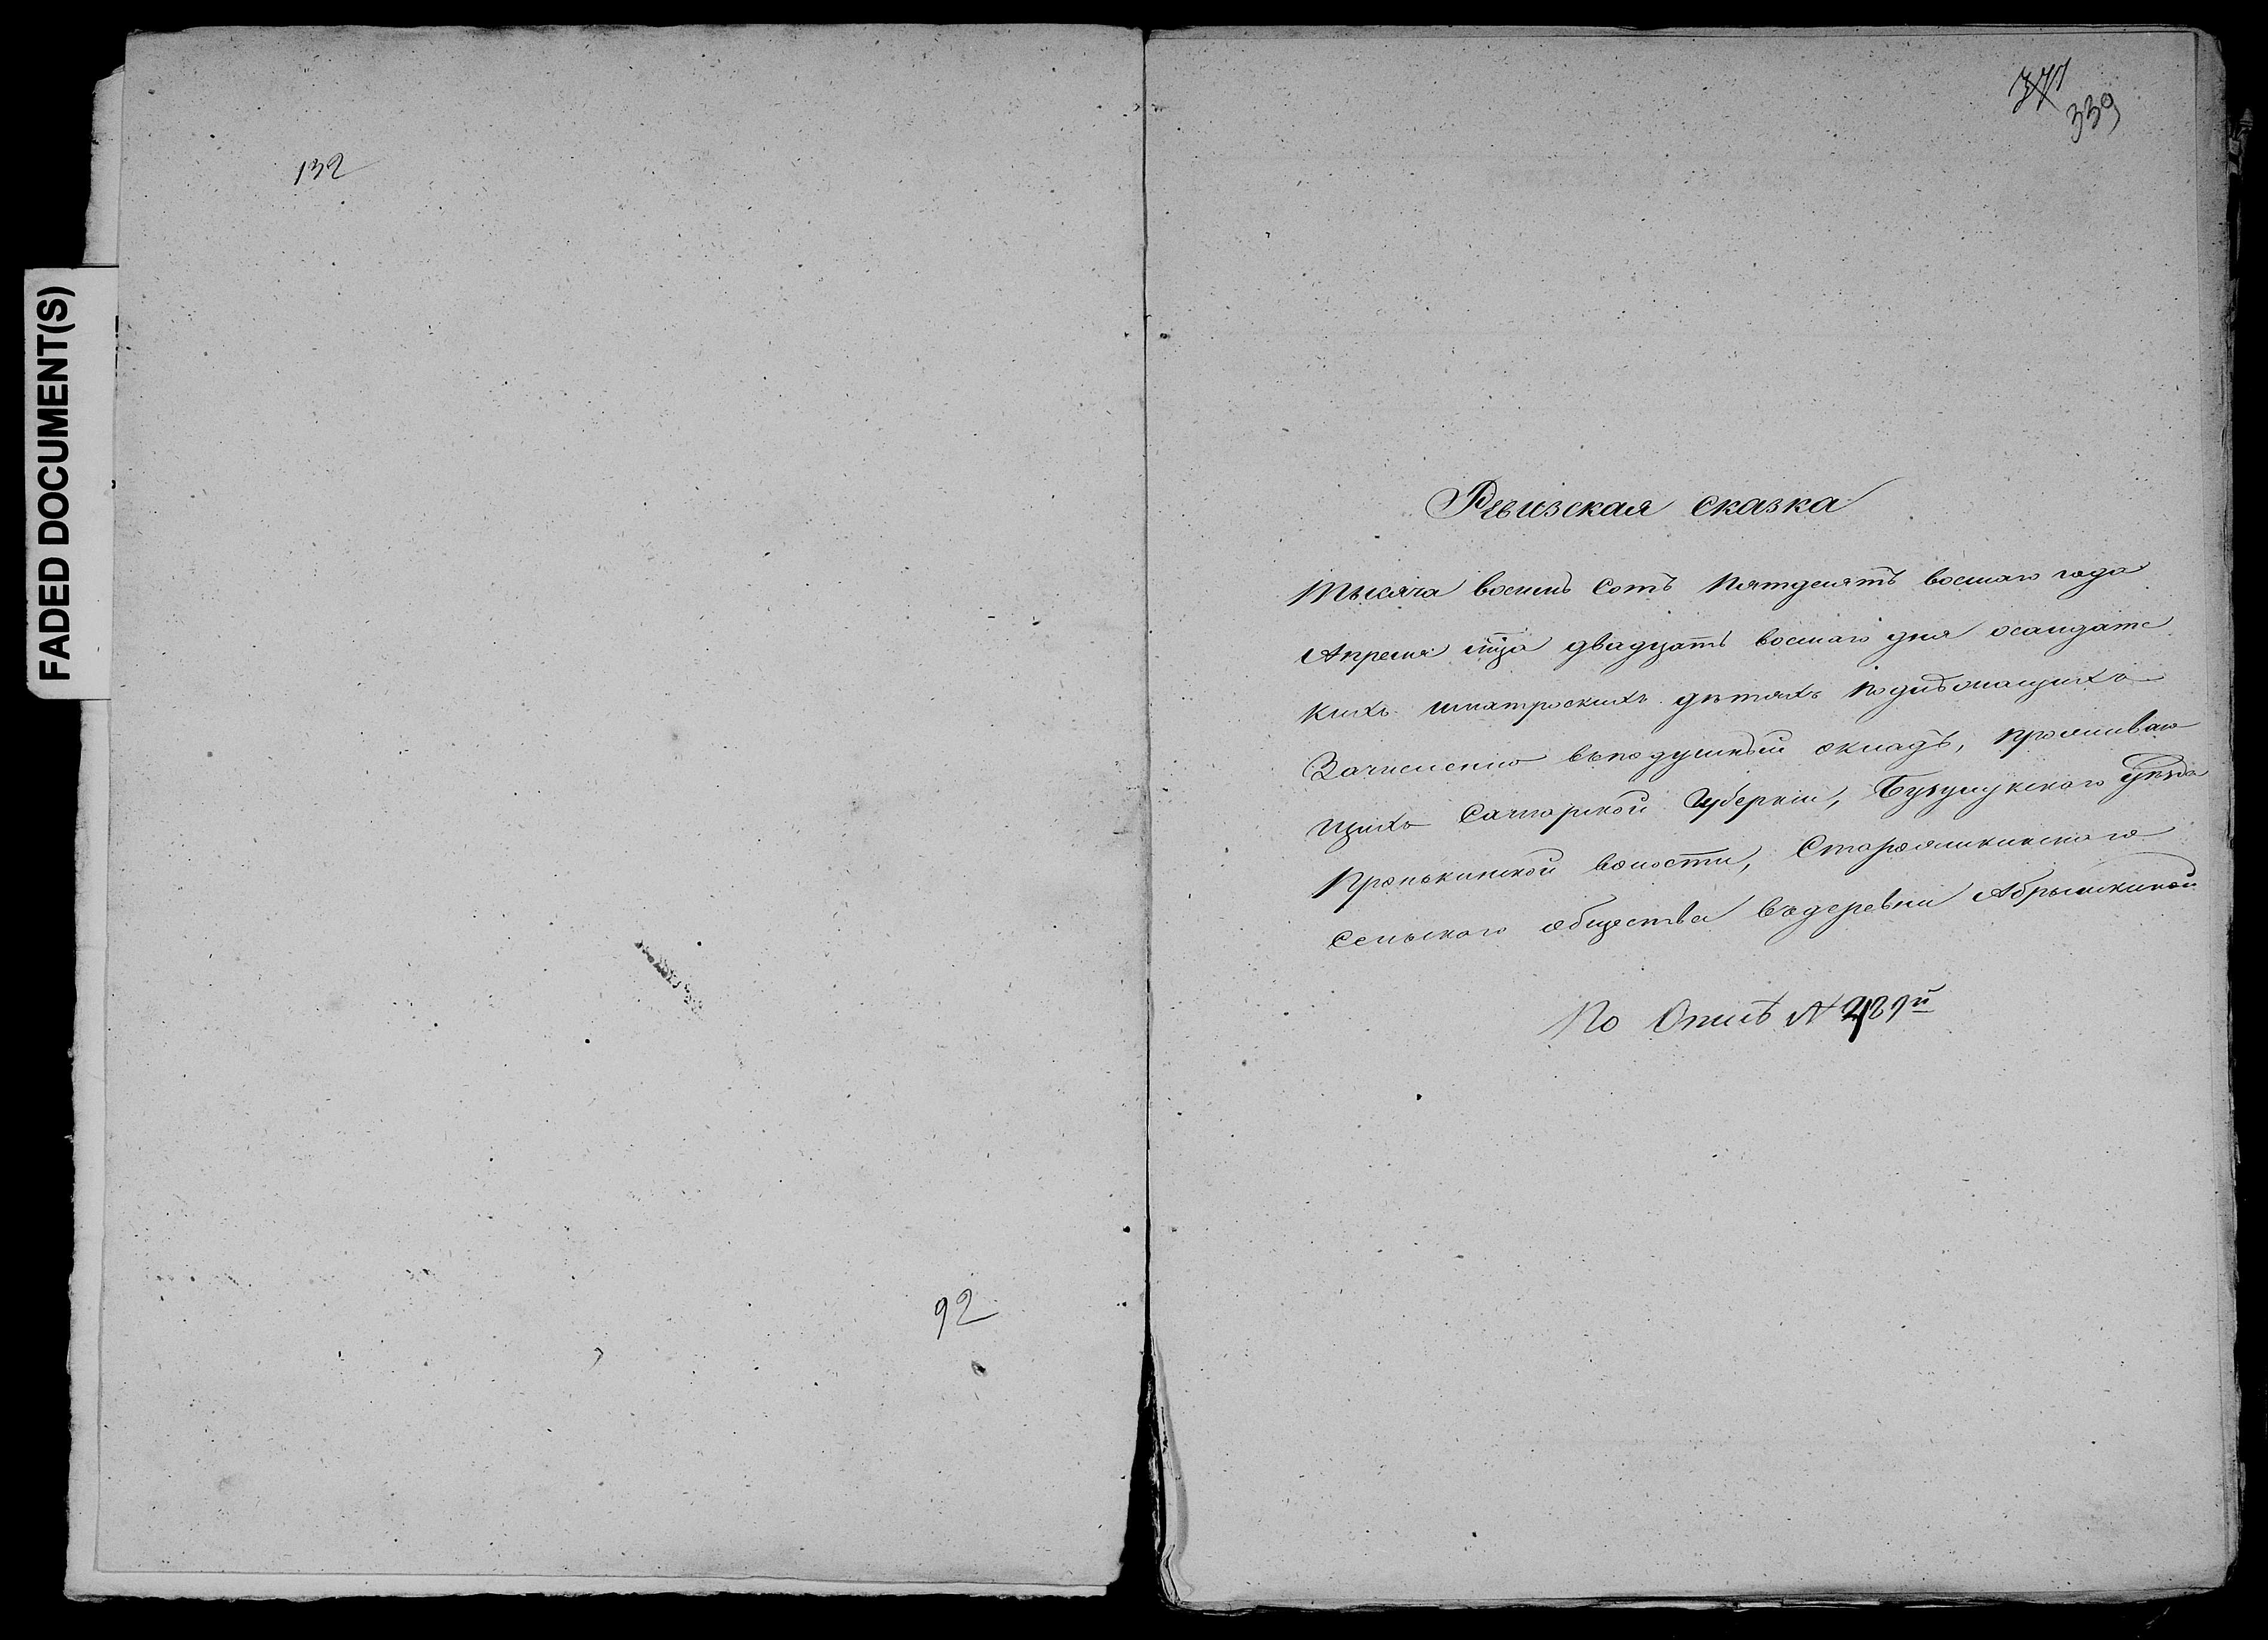 132
FADED DOCUMENT(S)
92
377
339
Ревизская сказка
Тысяча восемь сотъ пятдесятъ восмаго года
Апреля мца двадцать восмаго дня осолдатс
кихъ матроскихъ дѣтяхъ подлѣжащихъ
Зачислению вьподушный окладъ, проживаю
щихъ Самарской Губернiи, Бузулукского уѣзда
Пронькинской волости, Старояшкинского
Сельского общества въдеревни Абрышкиной
По Описѣ №